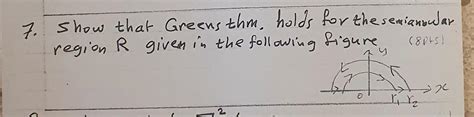 7. Show that Greens thm. holds for the semiannular
region R given in the following figure (8pts)
y
0 r₁ r₂ x
2